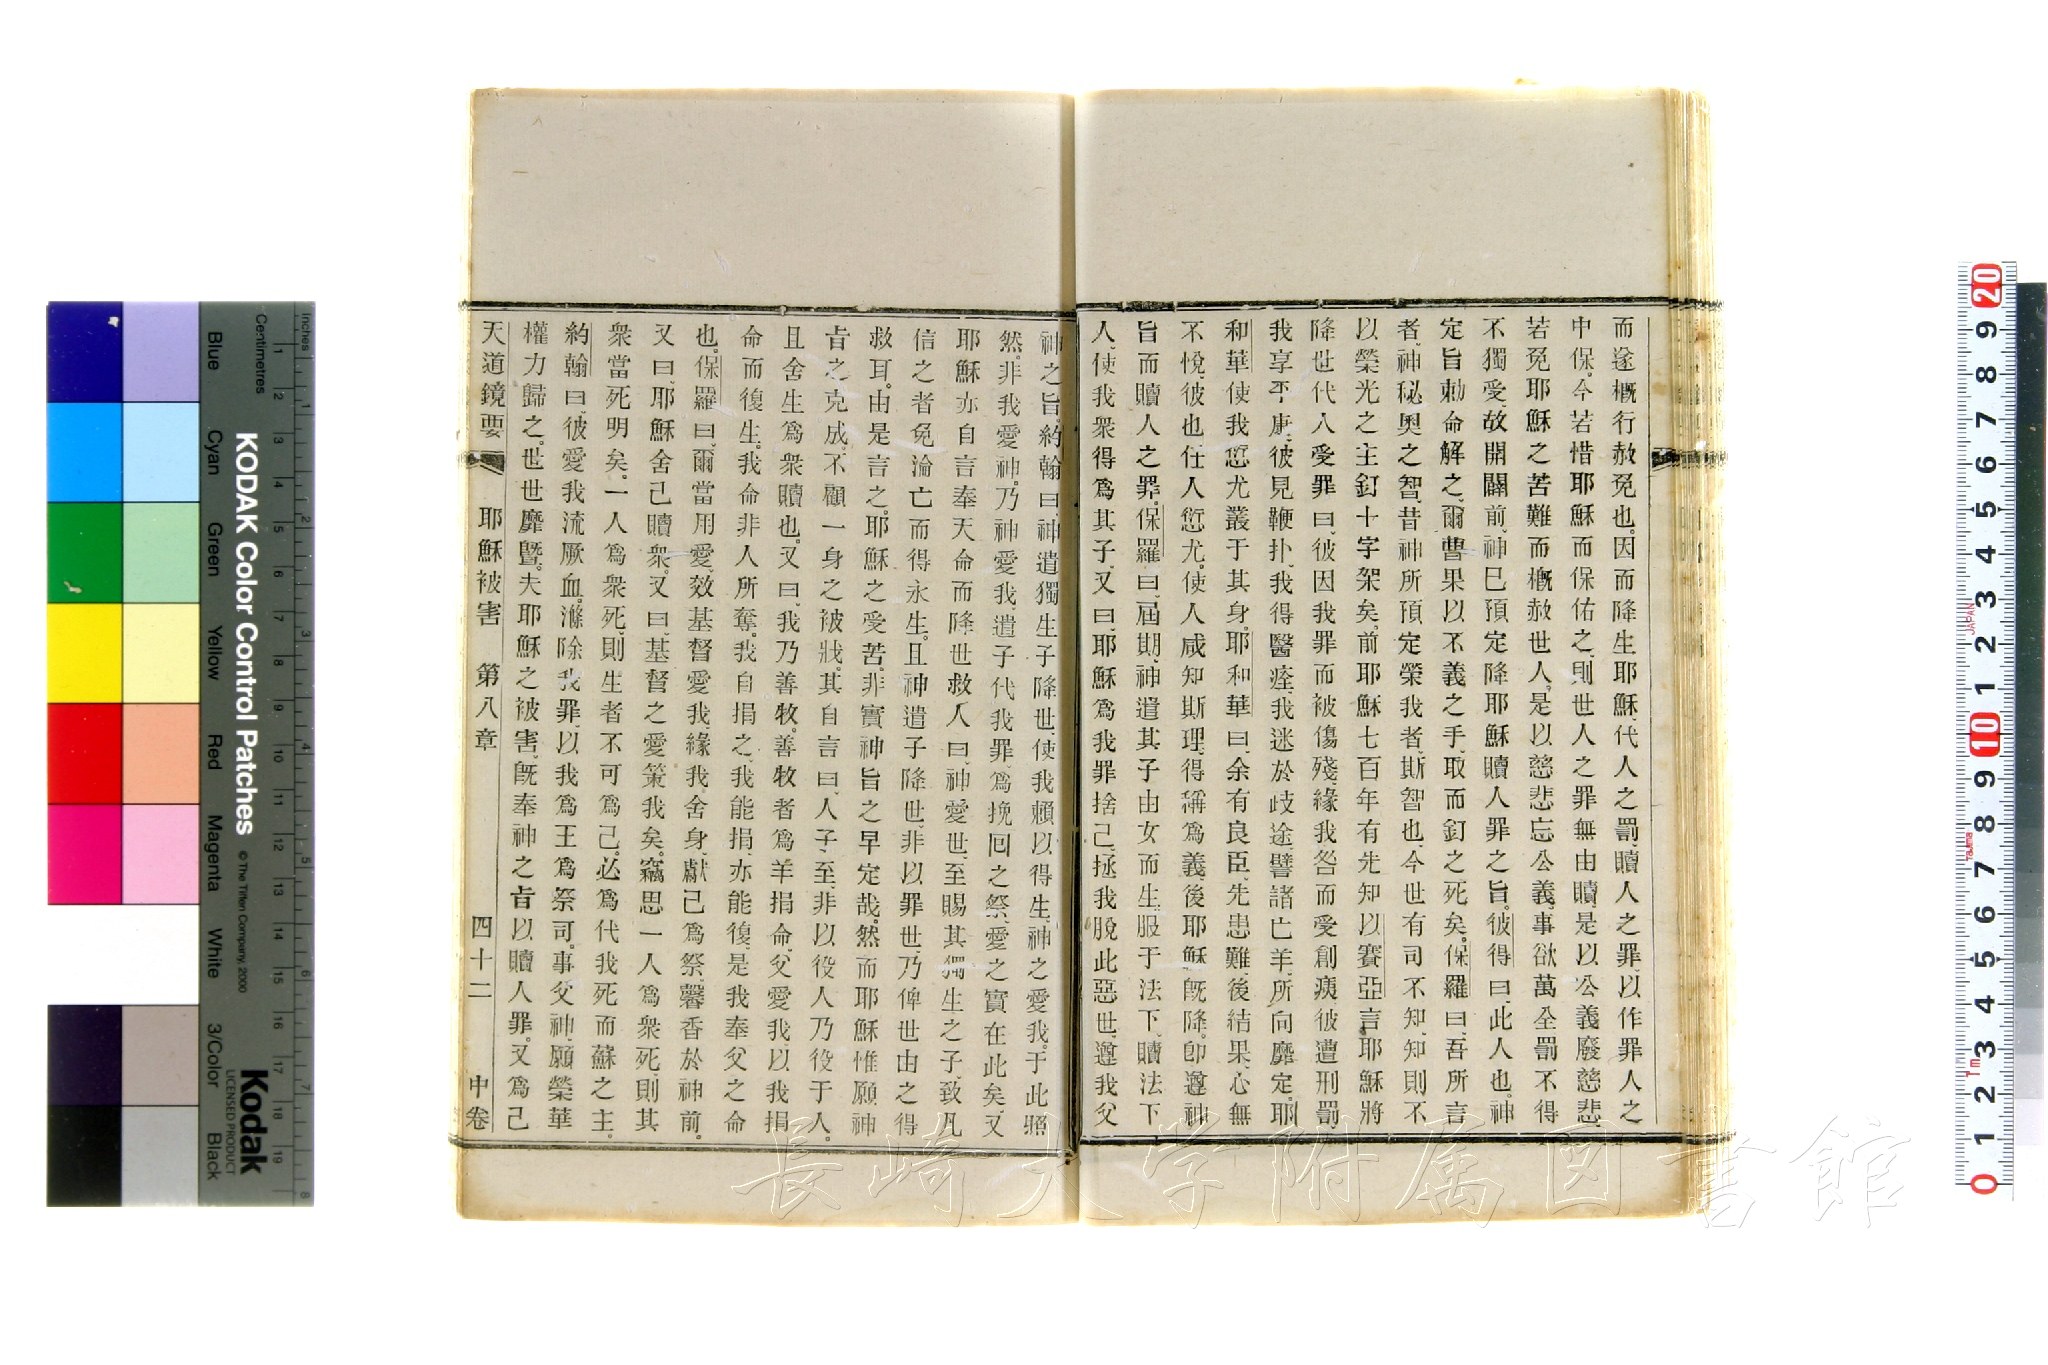 而遂概行赦免也。因而降生耶穌、代人之罰、贖人之罪、以作罪人之
中保。今若惜耶穌而保佑之、則世人之罪無由贖、是以公義廢慈悲、
若免耶穌之苦難而概赦世人、是以慈悲忘公義、事欲萬全、罰不得
不獨愛、故開闢前、神巳預定降耶穌贖人罪之旨。彼得曰、此人也、神
定旨勅命解之、爾曹果以不義之手、取而釘之死矣。保羅曰、吾所言
者、神秘奧之智、昔神所預定榮我者、斯智也、今世有司不知、知則不
以榮光之主釘十字架矣。前耶穌七百年、有先知以賽亞言、耶穌將
降世代人受罪曰、彼因我罪而被傷殘、緣我咎而受創痍、彼遭刑罰、
我享平康、彼見鞭扑、我得醫痊、我迷於歧途、譬諸亡羊、所向靡定、耶
和華使我愆尤叢于其身。耶和華曰、余有良臣、先患難、後結果、心無
不悅、彼也、任人愆尤、使人咸知斯理、得稱為義、後耶穌旣降。卽遵神
旨而贖人之罪。保羅曰、屆期、神遣其子由女而生、服于法下、贖法下
人、使我衆得為其子、又曰、耶穌為我罪捨己、拯我脫此惡世、遵我父
神之旨。約翰曰、神遣獨生子降世、使我賴以得生、神之愛我。于此照
然。非我愛神。乃神愛我、遣子代我罪、為挽回之祭、愛之實在此矣、又
耶穌亦自言奉天命而降世救人曰、神愛世、至賜其獨生之子、致凡
信之者免淪亡而得永生。且神遣子降世、非以罪世、乃俾世由之得
救耳。由是言之、耶穌之受苦、非實神旨之早定哉。然而耶穌惟願神
旨之克成、不顧一身之被戕。其自言曰、人子至、非以役人、乃役于人。
且舍生為衆贖也。又曰、我乃善牧。善牧者為羊捐命、父愛我、以我捐
命而復生。我命非人所奪。我自捐之、我能捐、亦能復、是我奉父之命
也。保羅曰、爾當用愛、效基督愛我、緣我舍身、獻己為祭、馨香於神前。
又曰、耶穌舍己贖衆、又曰、基督之愛策我矣。竊思一人為衆死、則其
衆當死明矣。一人為衆死、則生者不可為己。必為代我死而蘇之主、
約翰曰、彼愛我流厥血、滌除我罪、以我為王為祭司。事父神、願榮華
權力歸之、世世靡曁。夫耶穌之被害、旣奉神之旨以贖人罪。又為己
天道鏡要 耶穌被害 第八章 四十二 中卷
KODAK Color Control Patches © The Tiffen Company, 2000
Kodak LICENSED PRODUCT
Inches
Centimetres
Blue Cyan Green Yellow Red Magenta White 3/Color Black
長崎大学附属図書館
JAPAN
Tajima
1m